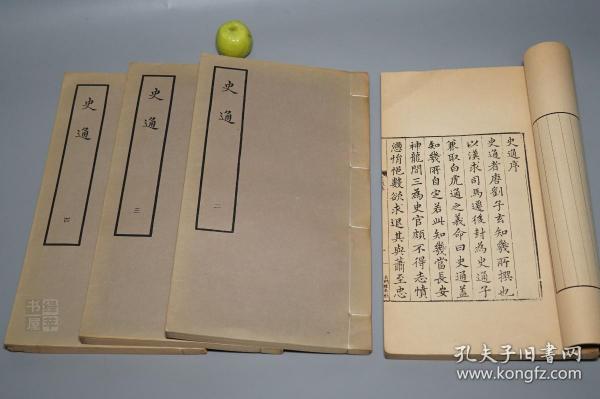 史通
四
史通
三
史通
二
史通序
史通者唐劉子玄知幾所撰也
以漢求司馬遷後封為史通子
兼取白虎通之義命曰史通蓋
知幾所自定若此知幾當長安
神龍間三為史官頗不得志憤
懣悁悒數欲求退其與蕭至忠
孔夫子旧书网
www.kongfz.com